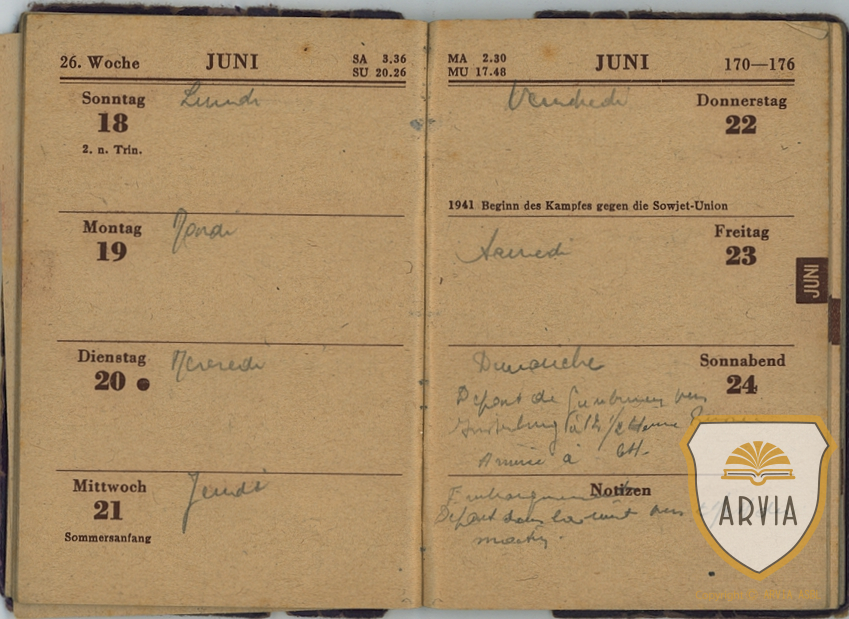 26. Woche JUNI SA 3.36
SU 20.26
Sonntag Lundi
18
2. n. Trin.
Montag Mardi
19
Dienstag Mercredi
20
Mittwoch Jeudi
21
Sommersanfang
MA 2.30 JUNI 170—176
MU 17.48
Vendredi Donnerstag
22
1941 Beginn des Kampfes gegen die Sowjet-Union
Samedi Freitag
23
Dimanche Sonnabend
24
Départ de
à 12 1/2 Heure
Arrivée à 6H.
Notizen
Départ dans la nuit vers
JUNI
ARVIA